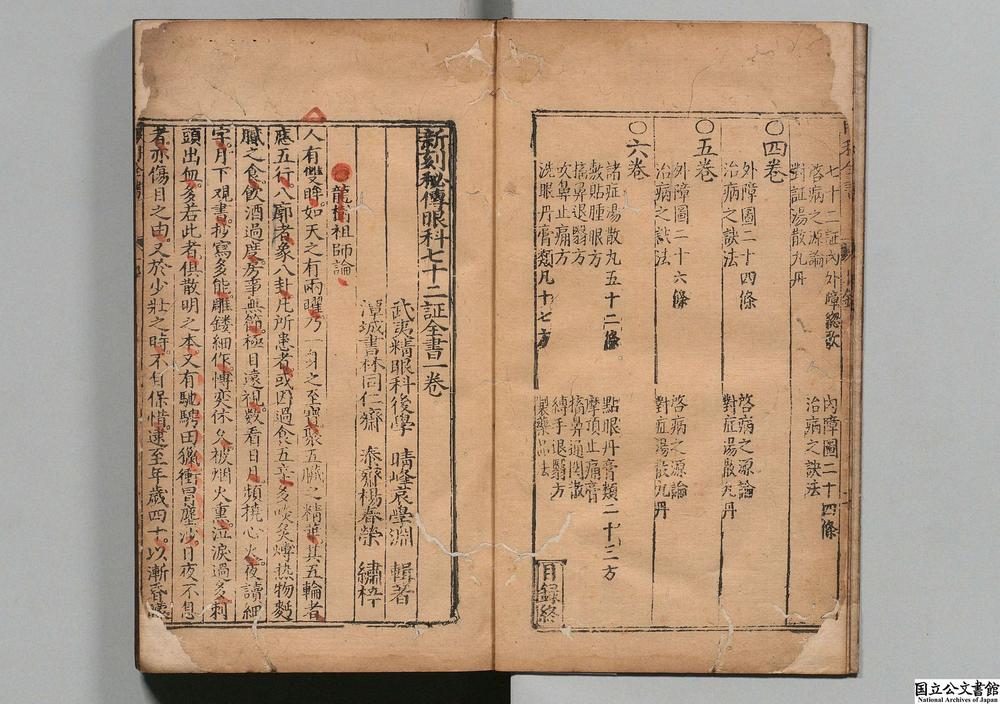 七十二証内外障総歌　內障圖二十四條
啓病之源論　治病之訣法
對証湯散九丹
〇四卷
外障圖二十四條　啓病之源論
治病之訣法　對症湯散九丹
〇五卷
外障圖二十六條　啓病之源論
治病之訣法　對症湯散九丹
〇六卷
諸症湯散丸五十二條　點眼丹膏類二十三方
敷貼腫眼方　摩頂止痛膏
搐鼻退翳方　搐鼻通関散
吹鼻止痛方　縳手退翳方
洗眼丹膏類凡十七方　製藥品法
目録終
新刻秘傳眼科七十二証全書一卷
武夷精眼科後學　晴峰袁學淵　輯著
潭城書林同仁齋　泰齋楊春榮　繡梓
龍樹祖師論
人有雙眸如天之有兩曜乃一身之至寶聚五臟之精華其五輪者
應五行八廓者象八卦凡所患者或因過食五辛多啖炙煿热物麪
臟之食飲酒過度房事無節極目遠視数看日月頻撓心火夜讀細
字月下观書抄寫多能雕鏤細作博奕休久被烟火重泣淚過多刺
頭出血多若此者俱散明之本又有馳騁田獵衝冒塵沙日夜不息
者亦傷目之由又於少壯之時不自保惜逮至年歲四十以漸昏
国立公文書館
National Archives of Japan